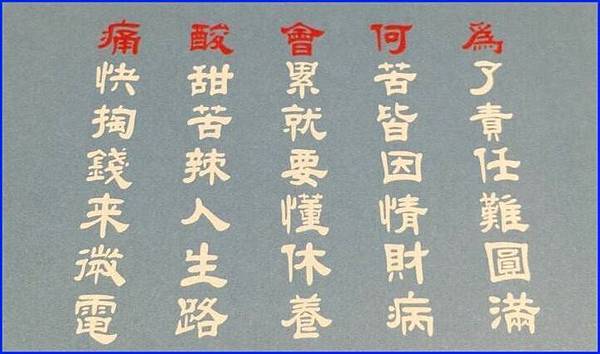 為了責任難圓滿
何苦皆因情財病
會累就要懂休養
酸甜苦辣人生路
痛快掏錢来微電